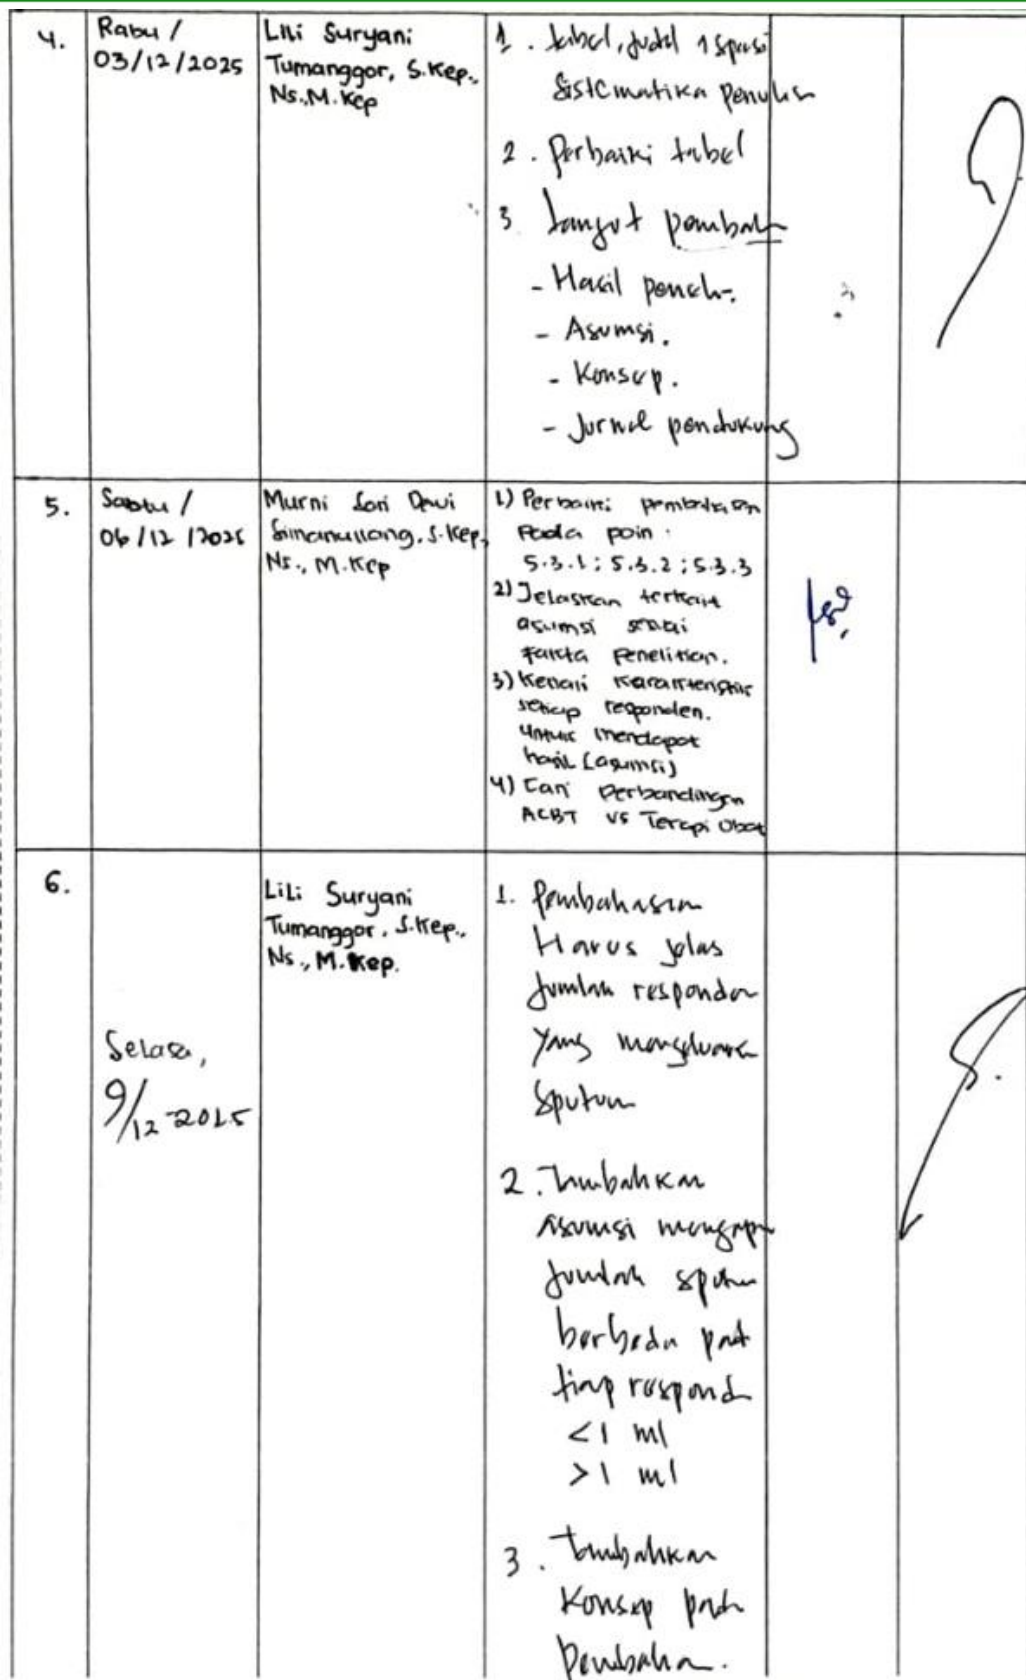 4.
Rabu /
03/12/2025
Lili Suryani
Tumanggor, S.Kep.,
Ns.,M.Kep
1. tabel, judul 1 spasi
Sistematika penulisan
2. Perbaiki tabel
3. Lanjut pembah
- Hasil
- Asumsi.
- Konsep.
- Jurnal pendukung
5.
Sabtu /
06/12/2025
Murni Sari Dewi
Simanullang, S.Kep,
Ns., M.Kep
1) Perbaiki pembahasan
Pada poin :
5.3.1 ; 5.3.2 ; 5.3.3
2) Jelaskan terkait
asumsi sesuai
fakta Penelitian.
3) Kenali Karakteristik
setiap responden.
untuk mendapat
hasil (asumsi)
4) Cari Perbandingan
ACBT vs Terapi Obat
6.
Selasa,
9/12-2025
Lili Suryani
Tumanggor, S.Kep.,
Ns., M.Kep.
1. Pembahasan
Harus jelas
Jumlah responden
yang mengeluarkan
Sputum
2. Tambahkan
Asumsi mengapa
Jumlah sputum
berbeda pada
tiap respond
<1 ml
>1 ml
3. Tambahkan
Konsep pada
Pembahasan.